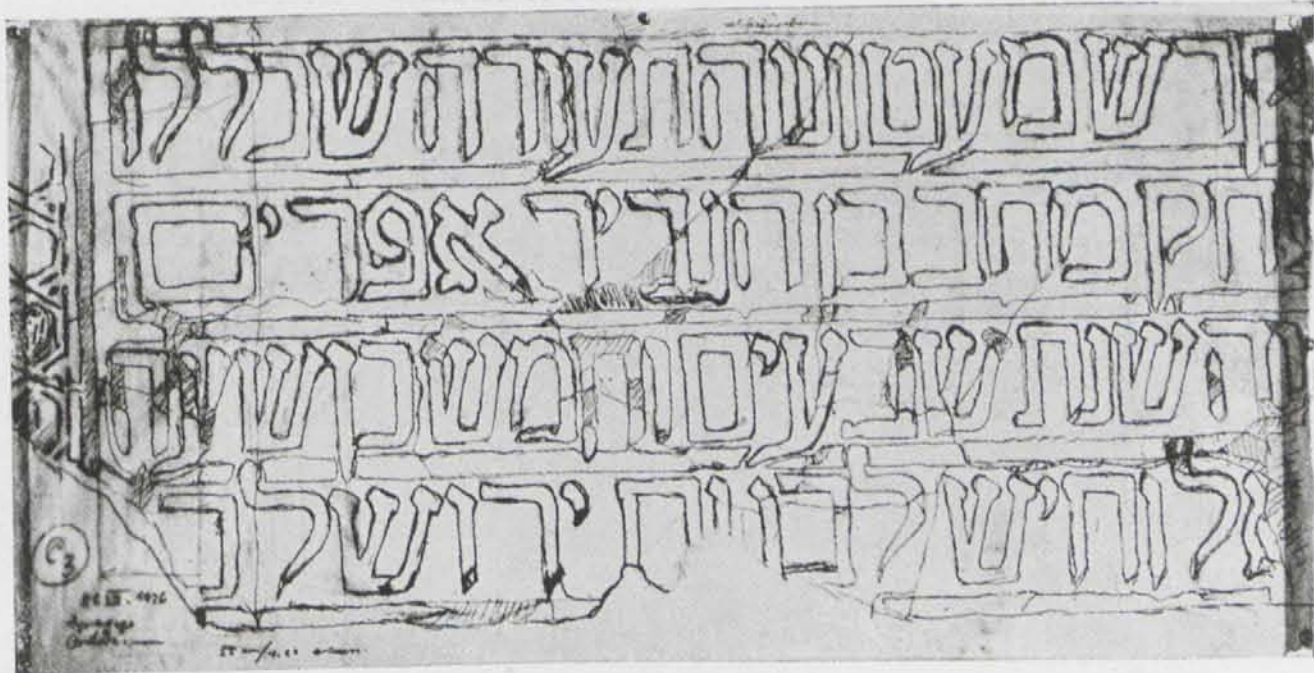 קדש מעט ונוה תעודה שכלל
חק מחב בן הגביר אפרים
ה שנת שבעים וחמש בן שעה
אל וחיש לבנות ירושלם
C3
1926